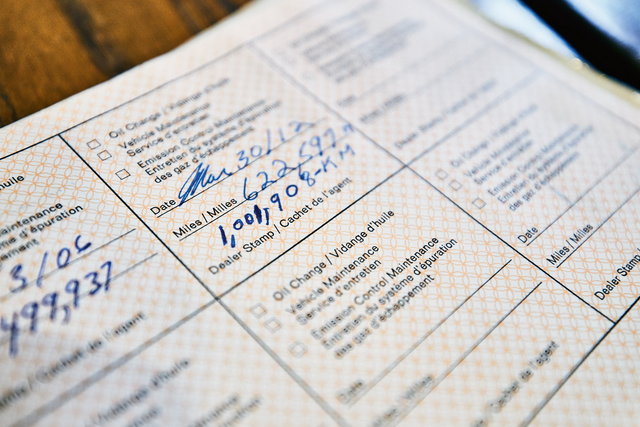 Oil Change / Vidange d'huile
Vehicle Maintenance
Service d'entretien
Emission Control Maintenance
Entretien du système d'épuration
des gaz d'échappement
Date Mar 30/12
Miles / Milles 622,597 m
1,001,908-KM
Dealer Stamp / Cachet de l'agent
d'huile
Maintenance
d'épuration
3/06
499,937
Cachet de l'agent
Oil Change / Vidange d'huile
Vehicle Maintenance
Service d'entretien
Emission Control Maintenance
Entretien du système d'épuration
des gaz d'échappement
Date
Miles / Milles
Cachet de l'agent
Oil Change
Vehicle Maintenance
Service d'entretien
Emission Control
Entretien du système
des gaz d'échappement
Date
Miles / Milles
Dealer Stamp